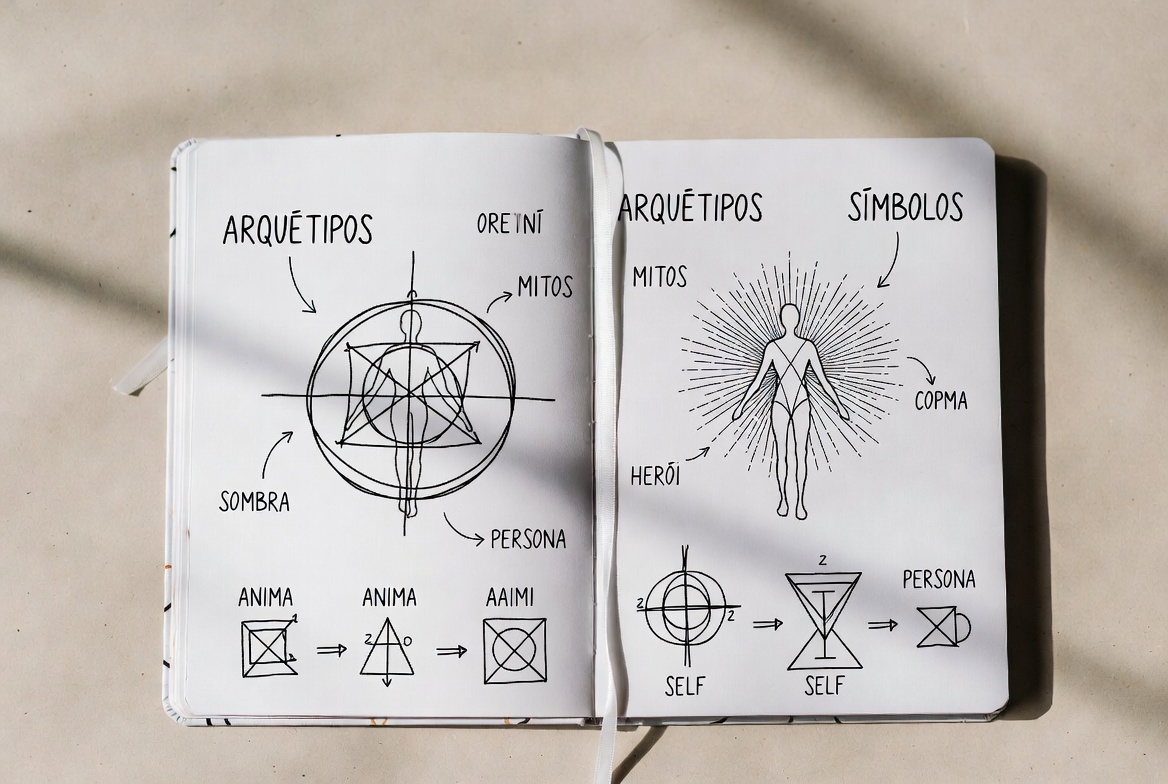 ARQUÉTIPOS
MITOS
SOMBRA
PERSONA
ANIMA
ANIMA
AAIMI
2 0
ARQUÉTIPOS SÍMBOLOS
MITOS
COPMA
HERÓI
2 2
SELF
2
SELF
PERSONA